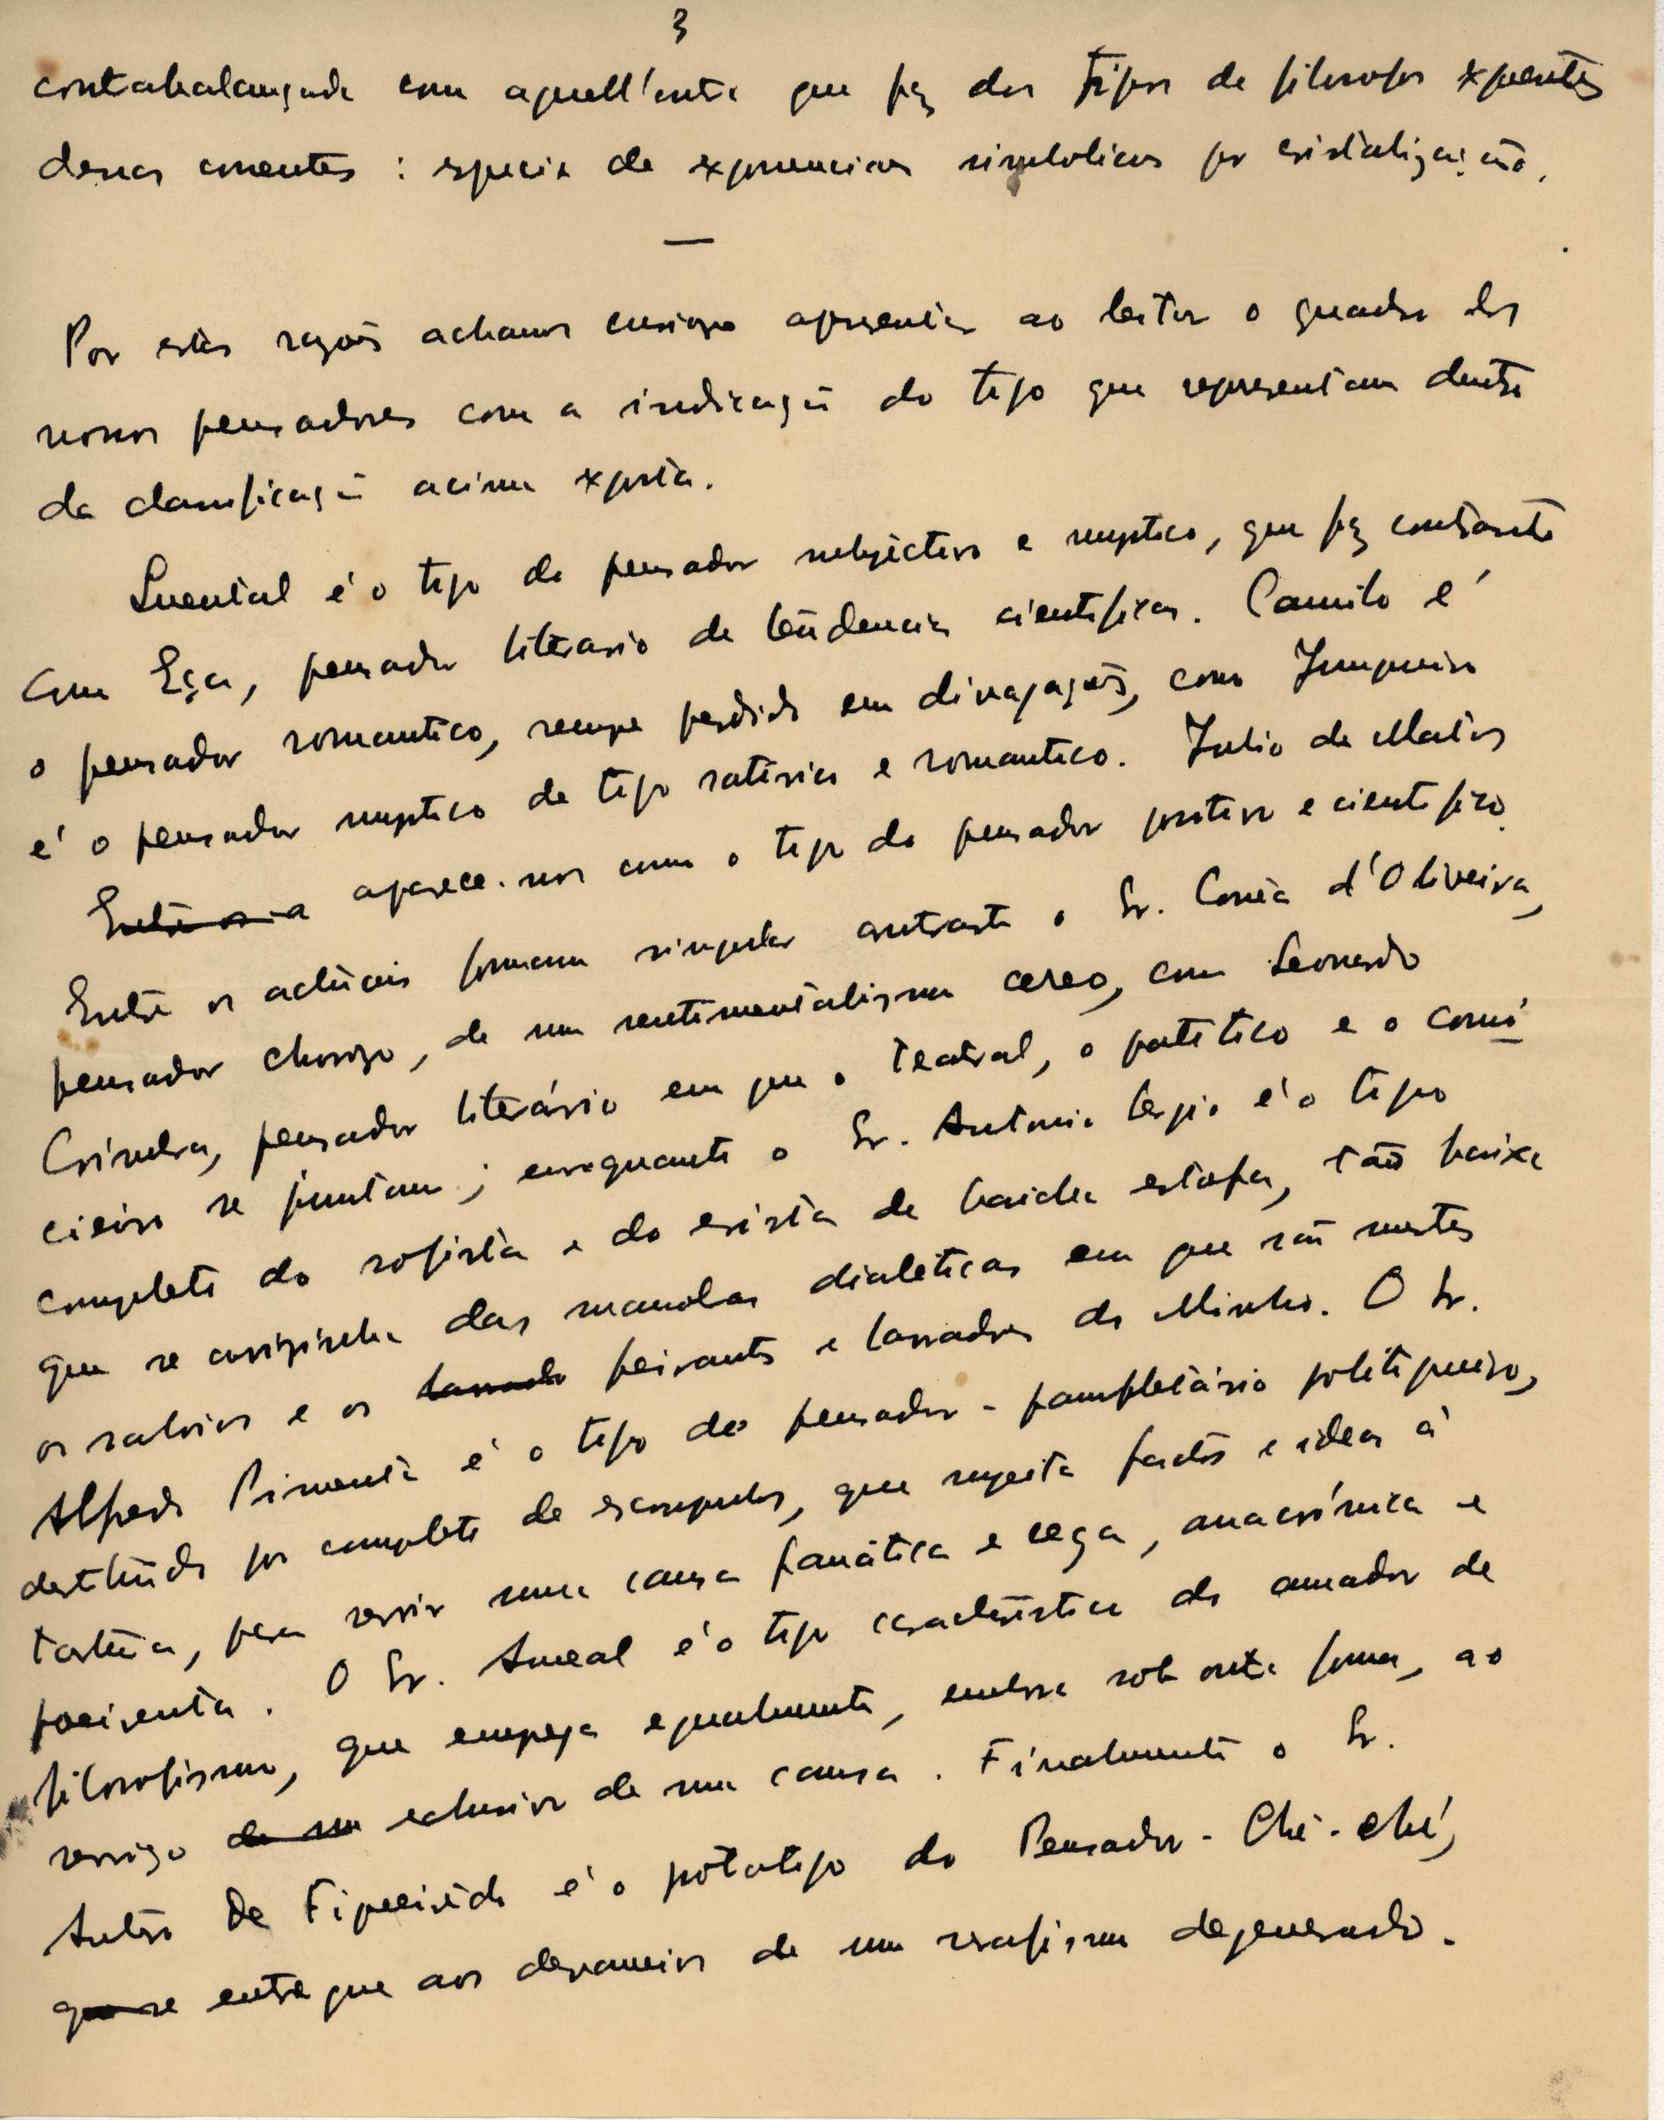 3
contrabalançada com aquell'outra que faz dos tipos de filosofos expoentes
dessas correntes : especie de expoencias simbolicas por cristalização.
—
Por estas razões achamos curioso apresentar ao leitor o quadro dos
nossos pensadores com a indicação do tipo que representam dentro
da classificação acima exposta.
Quental é o tipo do pensador subjectivo e mystico, que faz contraste
com Eça, pensador literario de tendencias cientificas. Camilo é
o pensador romantico, sempre perdido em divagações, como Junqueiro
é o pensador mystico de tipo satirico e romantico. Julio de Matos
aparece-nos como o tipo do pensador positivo e cientifico.
Entre os actuais formam singular contraste o Sr. Corrêa d'Oliveira,
pensador choroso, de um sentimentalismo cereo, com Leonardo
Coimbra, pensador literário em que o teatral, o patetico e o comi
cieiro se juntam; enquanto o Sr. Antonio Sergio é o tipo
completo do sofista e do erista de baixa estofa, tão baixa
que se avizinha das manolas dialeticas em que são mestres
os saloios e os feirantes e lavradores do Minho. O Sr.
Alfredo Pimenta é o tipo do pensador-pamfletário politiqueiro,
destituido por completo de escrupulos, que sujeita factos e ideas á
tortura, para servir uma causa fanática e cega, anacrónica e
poeirenta. O Sr. Ameal é o tipo caracteristico do amador de
filosofismo, que emprega egualmente, embora sob outra forma, ao
serviço exclusivo de uma causa. Finalmente o Sr.
Antero de Figueiredo é o prototipo do Pensador-Ché-ché,
entregue aos devaneios de um serafismo degenerado.